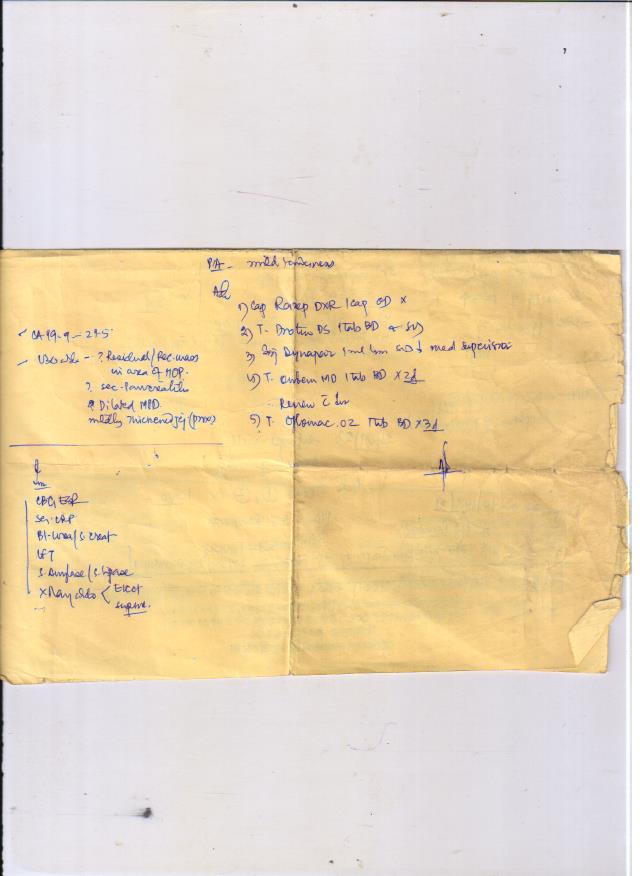 PA - mild tenderness
Adv
1) Cap Razep DXR 1cap OD x
2) T. Drotin DS 1tab BD
3) Inj Dynapar 1ml Im med supervision
4) T. MD 1tab BD x 2d
- Review c
5) T. Oflomac 02 1tab BD x 3d
CA-19-9 -
- ? Residual/Rec. mass
in area of HOP.
? sec. Pancreatitis
? Dilated MPD
mildly thickened jej (prox)
CBC, ESR
Ser. CRP
Bl-urea/S. creat
LFT
S. Amylase/S. lipase
X Ray abdo < Erect
supine.